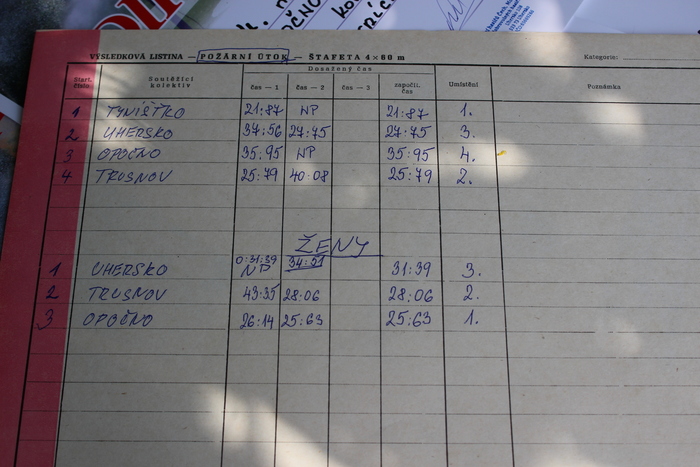 VÝSLEDKOVÁ LISTINA — POŽÁRNÍ ÚTOK — ŠTAFETA 4×60 m
Kategorie:
Dosažený čas
Start. číslo Soutěžící kolektiv čas — 1 čas — 2 čas — 3 započít. čas Umístění Poznámka
1 TYNIŠŤKO 21:87 NP 21:87 1.
2 UHERSKO 37:56 27:75 27:75 3.
3 OPOČNO 35:95 NP 35:95 4.
4 TRUSNOV 25:79 40:08 25:79 2.
ŽENY
0:31:39
1 UHERSKO NP 34:51 31:39 3.
2 TRUSNOV 43:35 28:06 28:06 2.
3 OPOČNO 26:14 25:63 25:63 1.